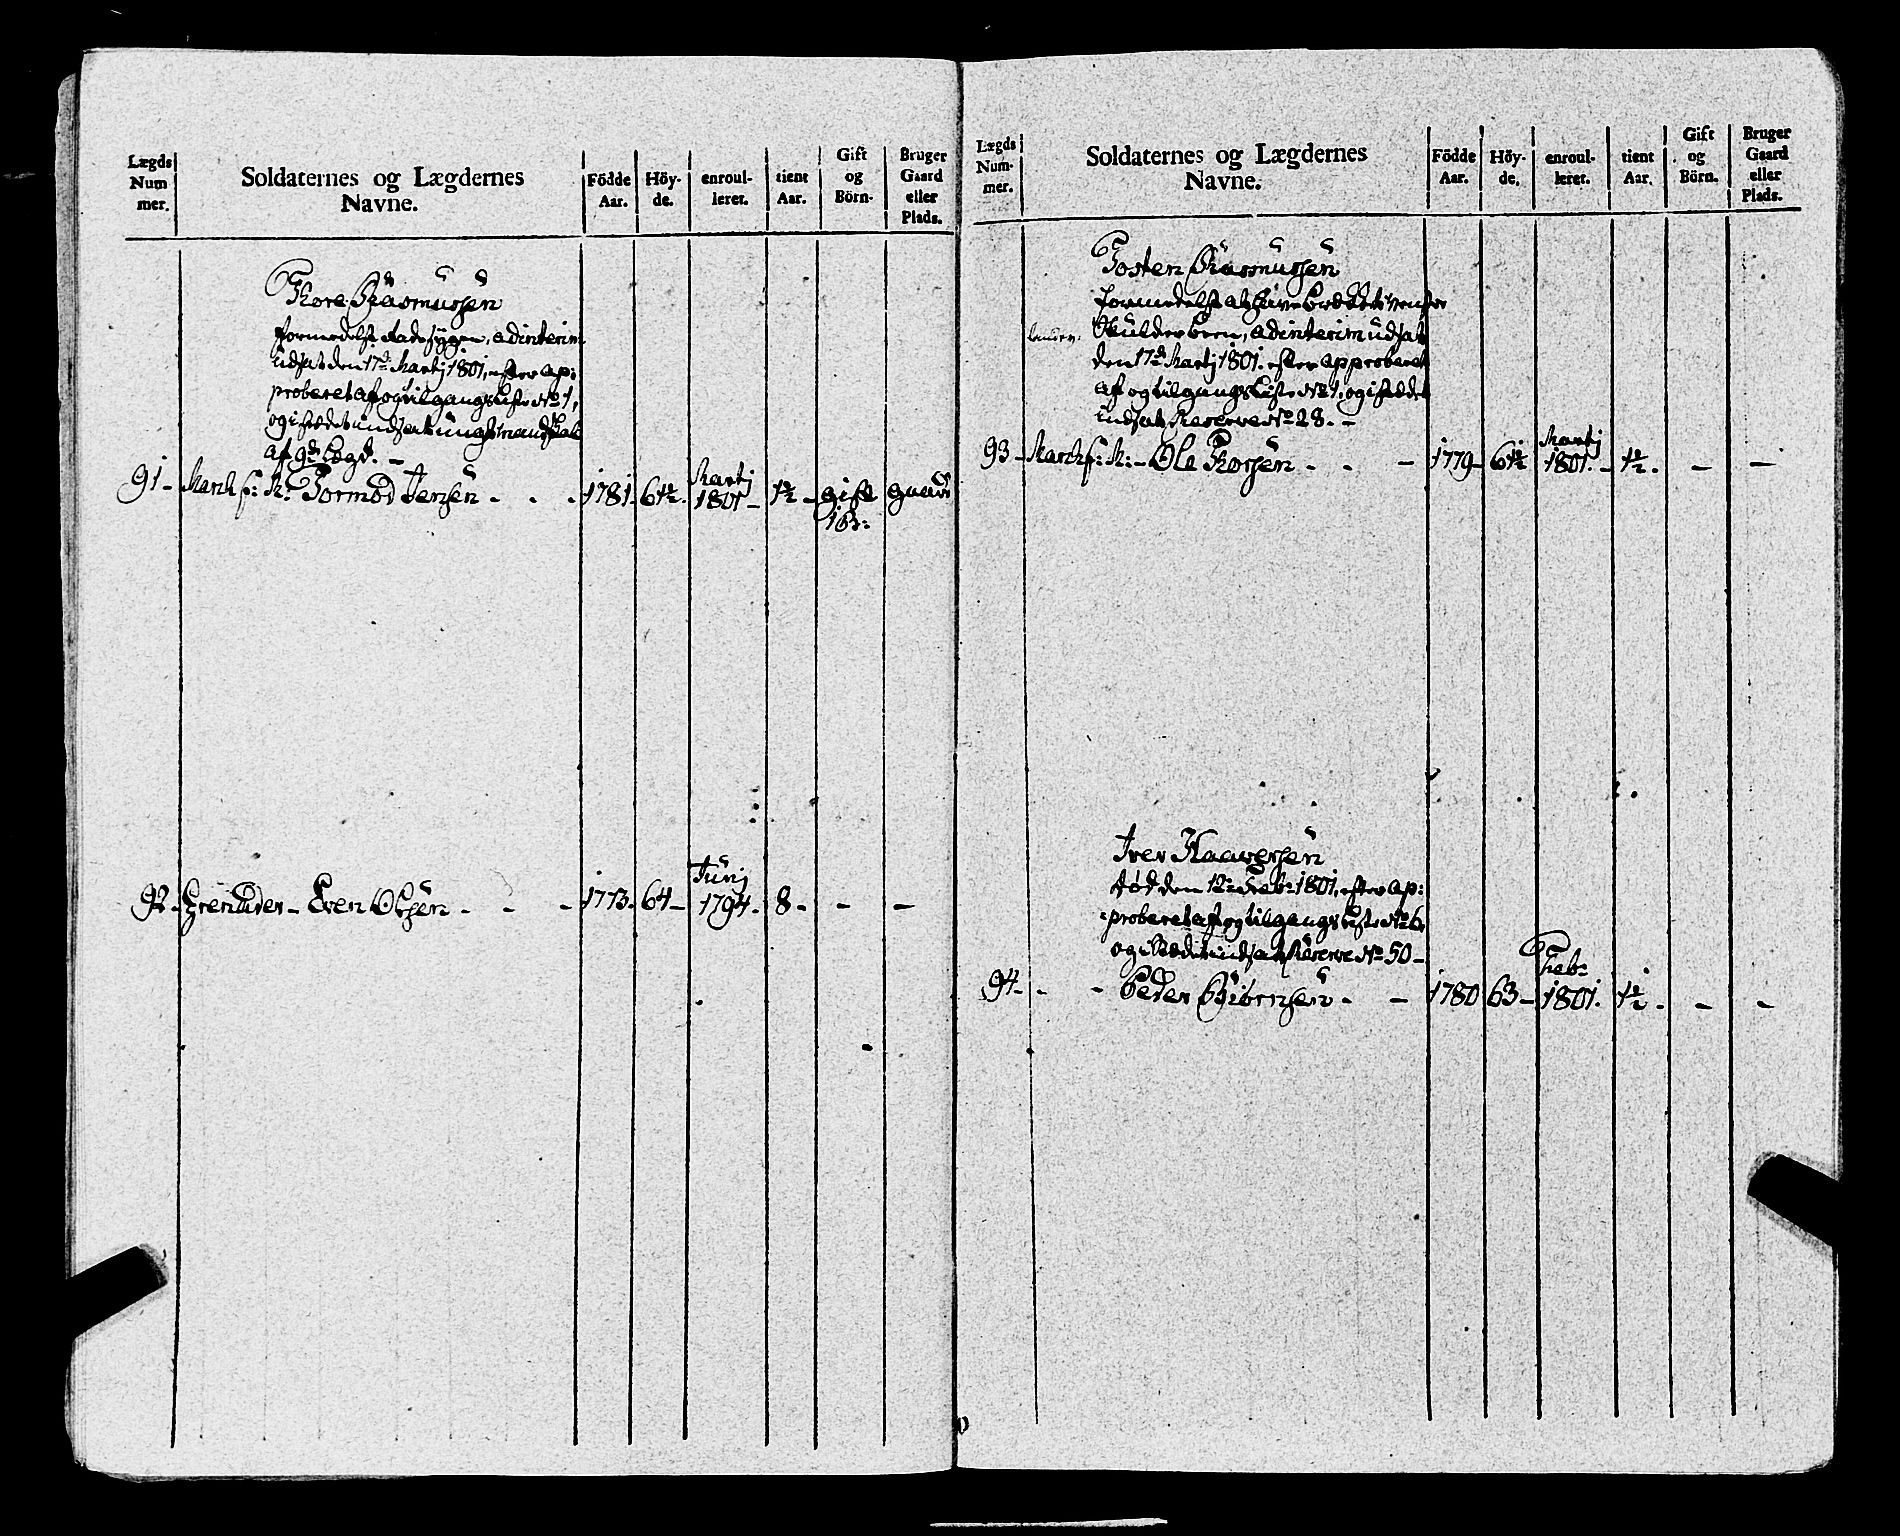 Lægds Num mer.
Soldaternes og Lægdernes Navne.
Födde Aar.
Höy- de.
enroul- leret.
tient Aar.
Gift og Börn-
Bruger Gaard eller Plads.
Thore Rasmussen
formedelst Radesygen, adinterim
udsat den 17de Martj 1801, efter ap:
proberet af og tilgangs Liste No 1,
og i stædet indsat ungt mandskab
af 9de Lægd. -
91 - March f: K: Tormod Jensen - - - 1781. 61½. Martj 1801 - 1½ - gift 1 B: gaard
92 - Grenadeer - Even Olsen - - - 1773. 64 - Junj 1794. 8 - - -
Lægds Num- mer.
Soldaternes og Lægdernes Navne.
Födde Aar.
Höy- de.
enroul- leret.
tient Aar.
Gift og Börn.
Bruger Gaard eller Plads.
Tosten Rasmussen
formedelst at have brækket venstre
Skulder been, adinterim udsat
den 17de Martj 1801. efter approberet
af og tilgangs Liste No 1, og i stædet
indsat Reserve No 28. -
93 - March f: K: - Ole Thorsen - - - 1779 - 61½ Martj 1801. - 1½. - -
Iver Haaversen
død den 12te Feb: 1801, efter ap:
proberet af og tilgangs Liste No 6,
og i stædet indsat Reserve No 50 -
94 - - - Peder Biørnsen - - 1780 63 - Feb: 1801. 1½. - -